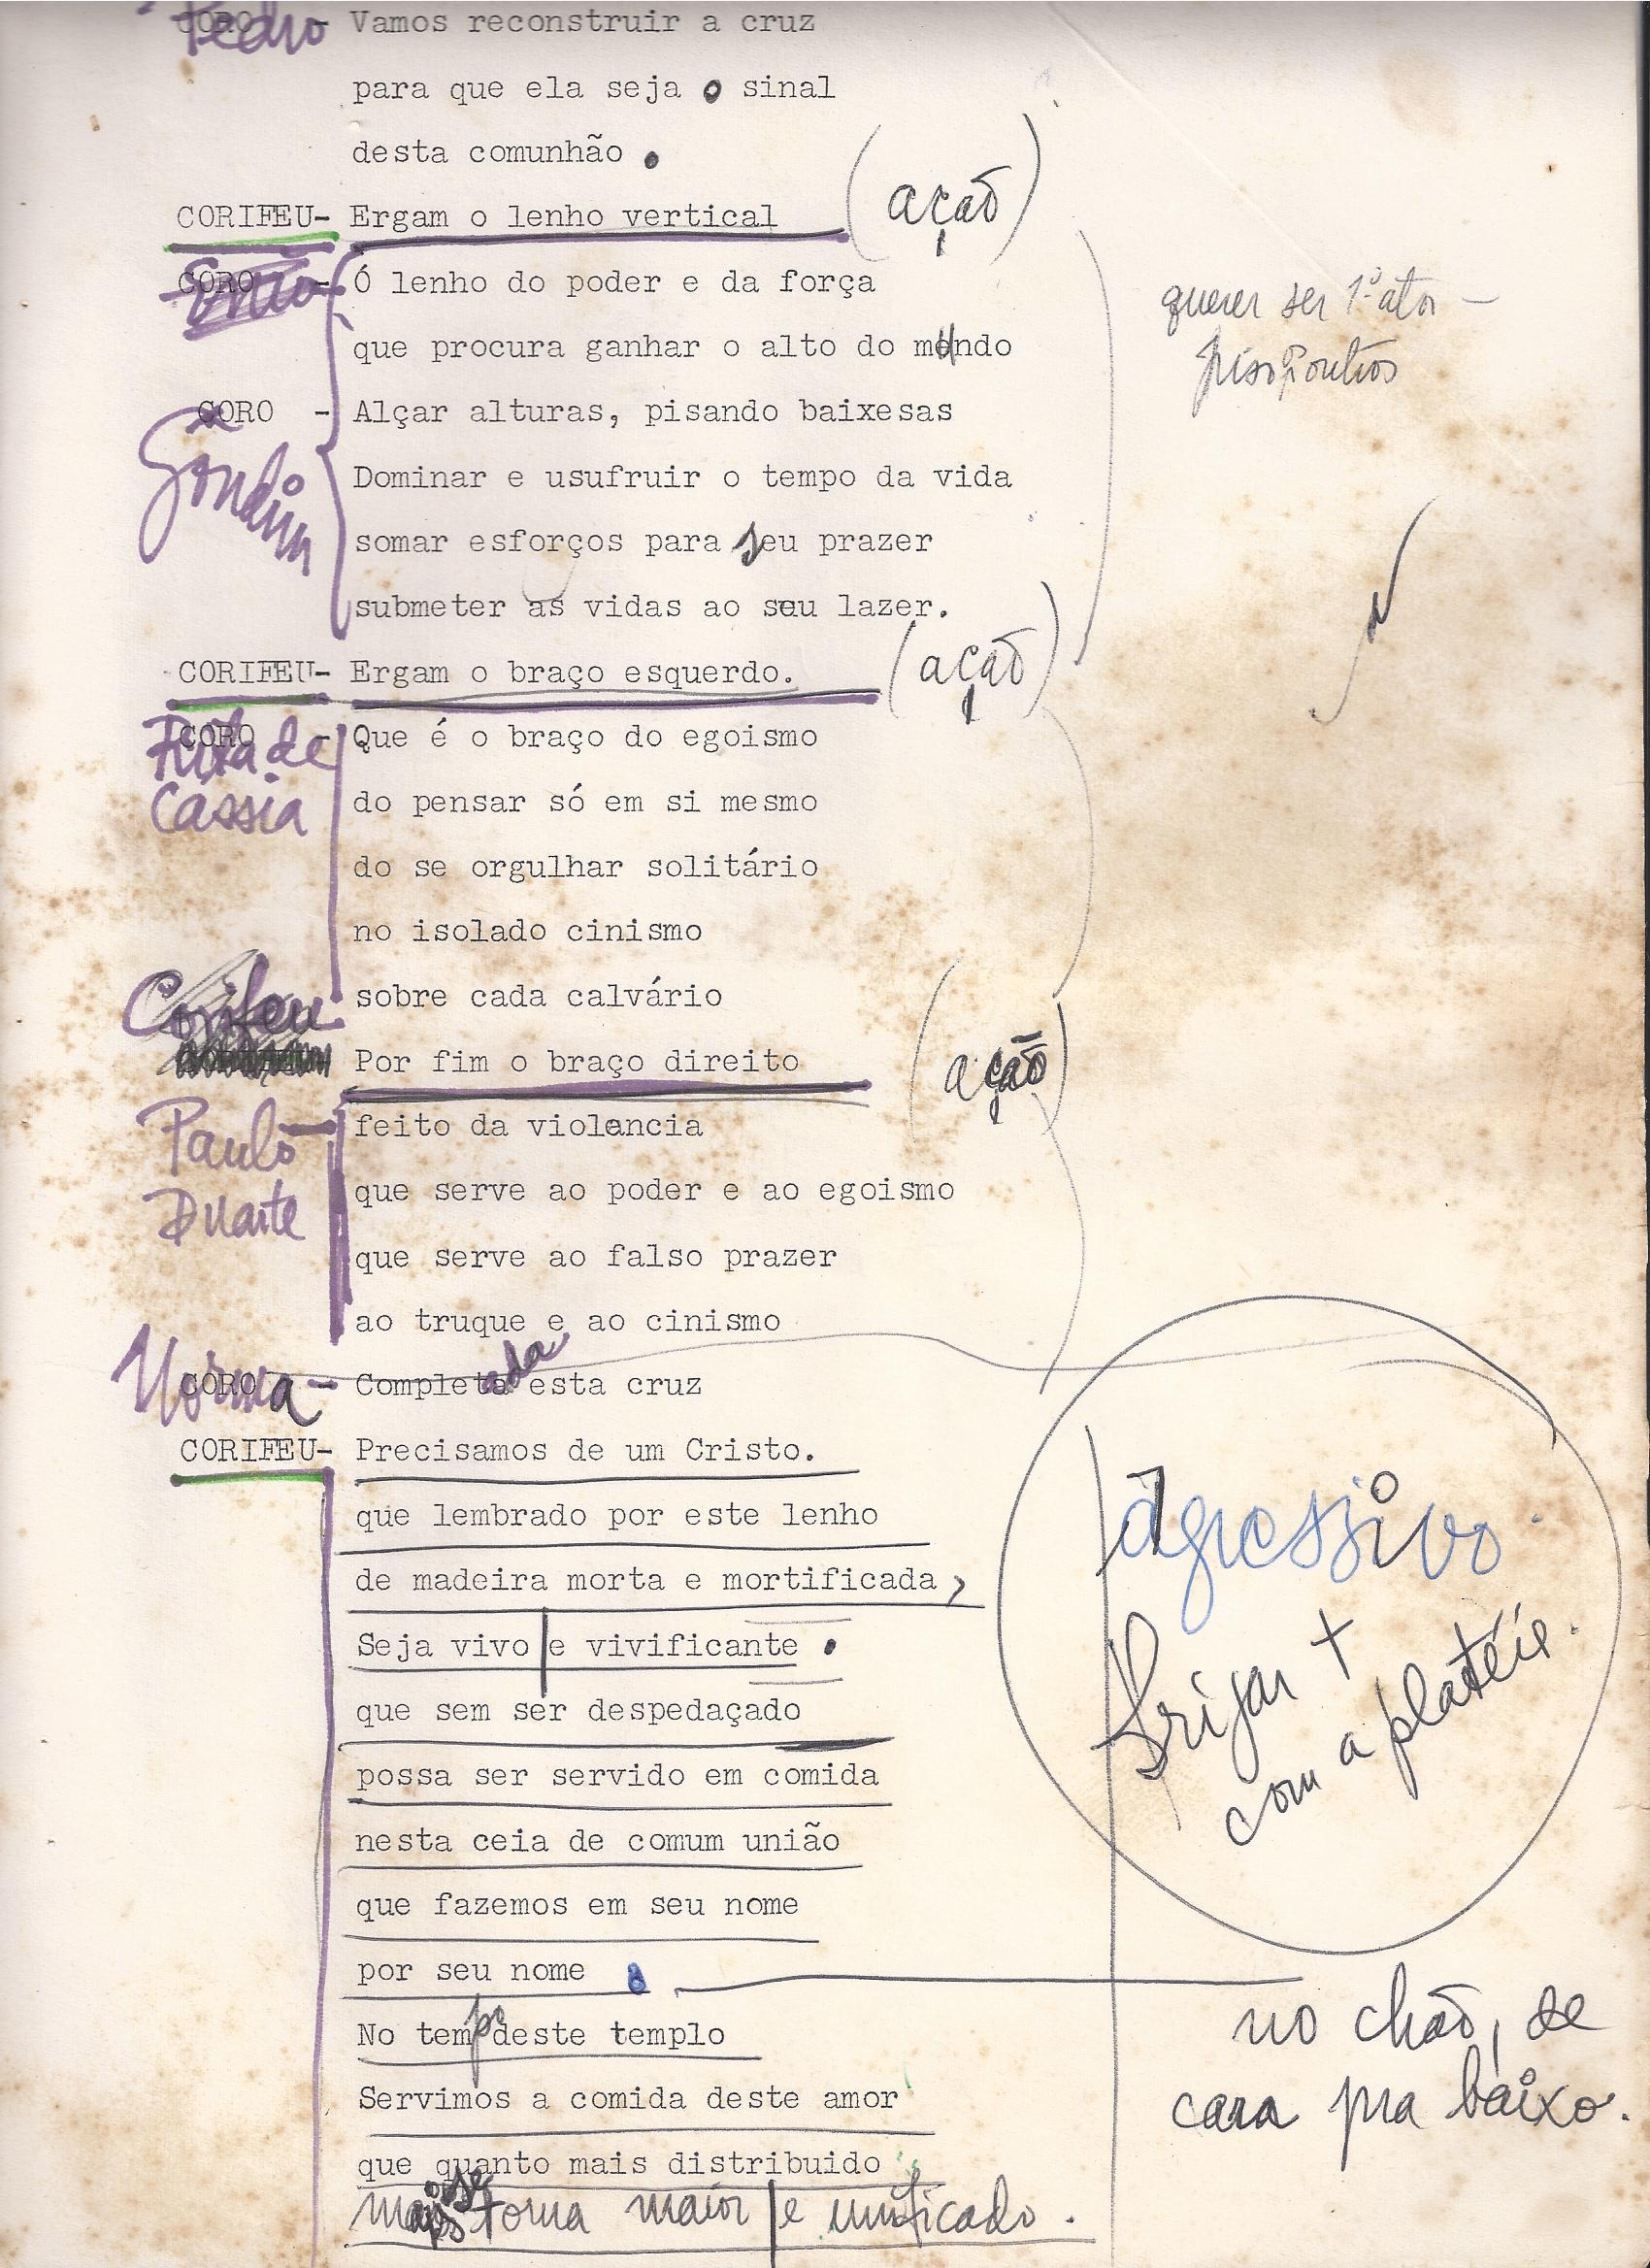 CORO - Pedro Vamos reconstruir a cruz
para que ela seja o sinal
desta comunhão .
CORIFEU- Ergam o lenho vertical (ação)
CORO - Ó lenho do poder e da força
que procura ganhar o alto do mundo
querer ser 1º ator -
CORO - Alçar alturas, pisando baixesas
Gondim
Dominar e usufruir o tempo da vida
somar esforços para seu prazer
submeter as vidas ao seu lazer.
CORIFEU- Ergam o braço esquerdo. (ação)
CORO - Que é o braço do egoismo
Rita de
Cássia
do pensar só em si mesmo
do se orgulhar solitário
no isolado cinismo
sobre cada calvário
Corifeu
Por fim o braço direito (ação)
Paulo
Duarte
feito da violencia
que serve ao poder e ao egoismo
que serve ao falso prazer
ao truque e ao cinismo
CORO Norma - Completada esta cruz
CORIFEU- Precisamos de um Cristo.
que lembrado por este lenho
de madeira morta e mortificada,
Seja vivo e vivificante .
que sem ser despedaçado
possa ser servido em comida
nesta ceia de comum união
que fazemos em seu nome
por seu nome
agressivo.
Brigar +
com a platéia.
no chão, de
cara pra baixo.
No tempo deste templo
Servimos a comida deste amor
que quanto mais distribuido
mais se torna maior e unificado.